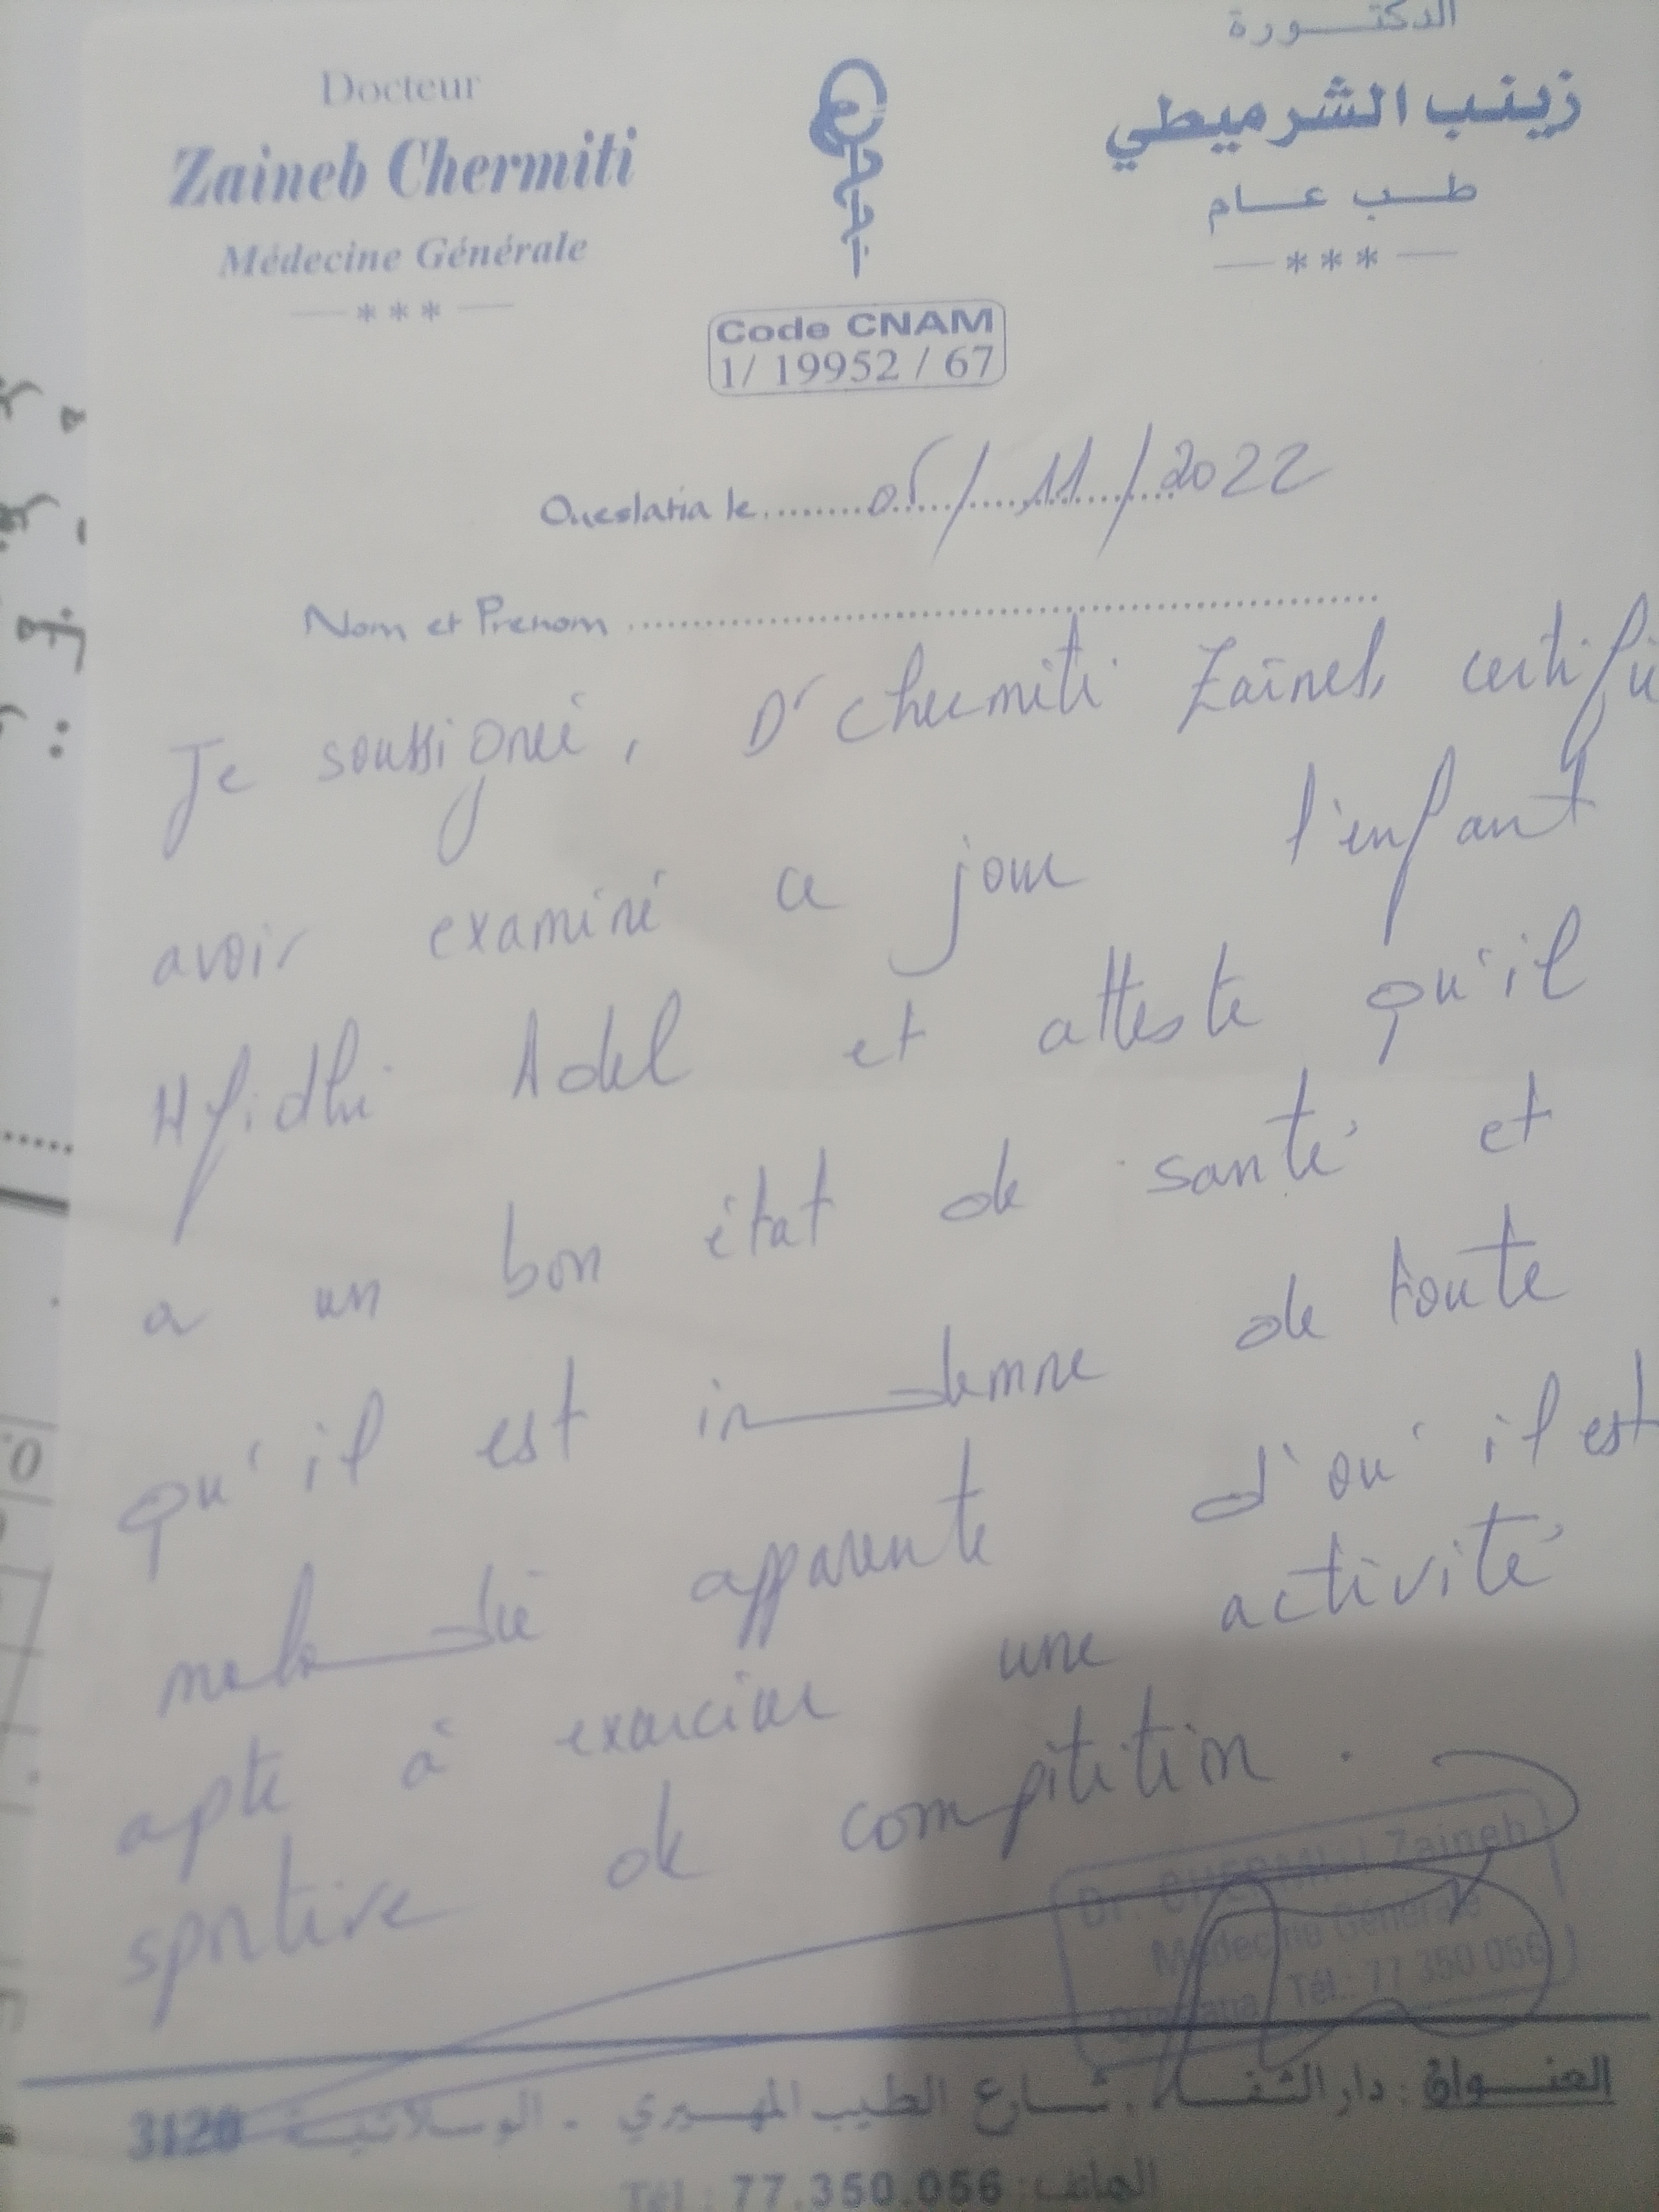 Docteur
Zaineb Chermiti
Médecine Générale
***
Code CNAM
1/ 19952 / 67
الدكتـــورة
زينب الشرميطي
طـب عـام
***
Oueslatia le 05/11/2022
Nom et Prenom
Je soussignée, Dr Chermiti Zaineb, certifie
avoir examiné ce jour l'enfant
Hfidhi Adel et atteste qu'il
a un bon état de santé et
qu'il est indemne de toute
maladie apparente d'où il est
apte à exercice une activité
sportive de compétition.
Dr. CHERMITI Zaineb
Médecine Générale
Oueslatia Tél.: 77 350 056
العنـــوان : دار الشفـــاء . شـارع الطيب المهـيري - الوسـلاتيـة 3120
Tél : 77.350.056 الهاتف